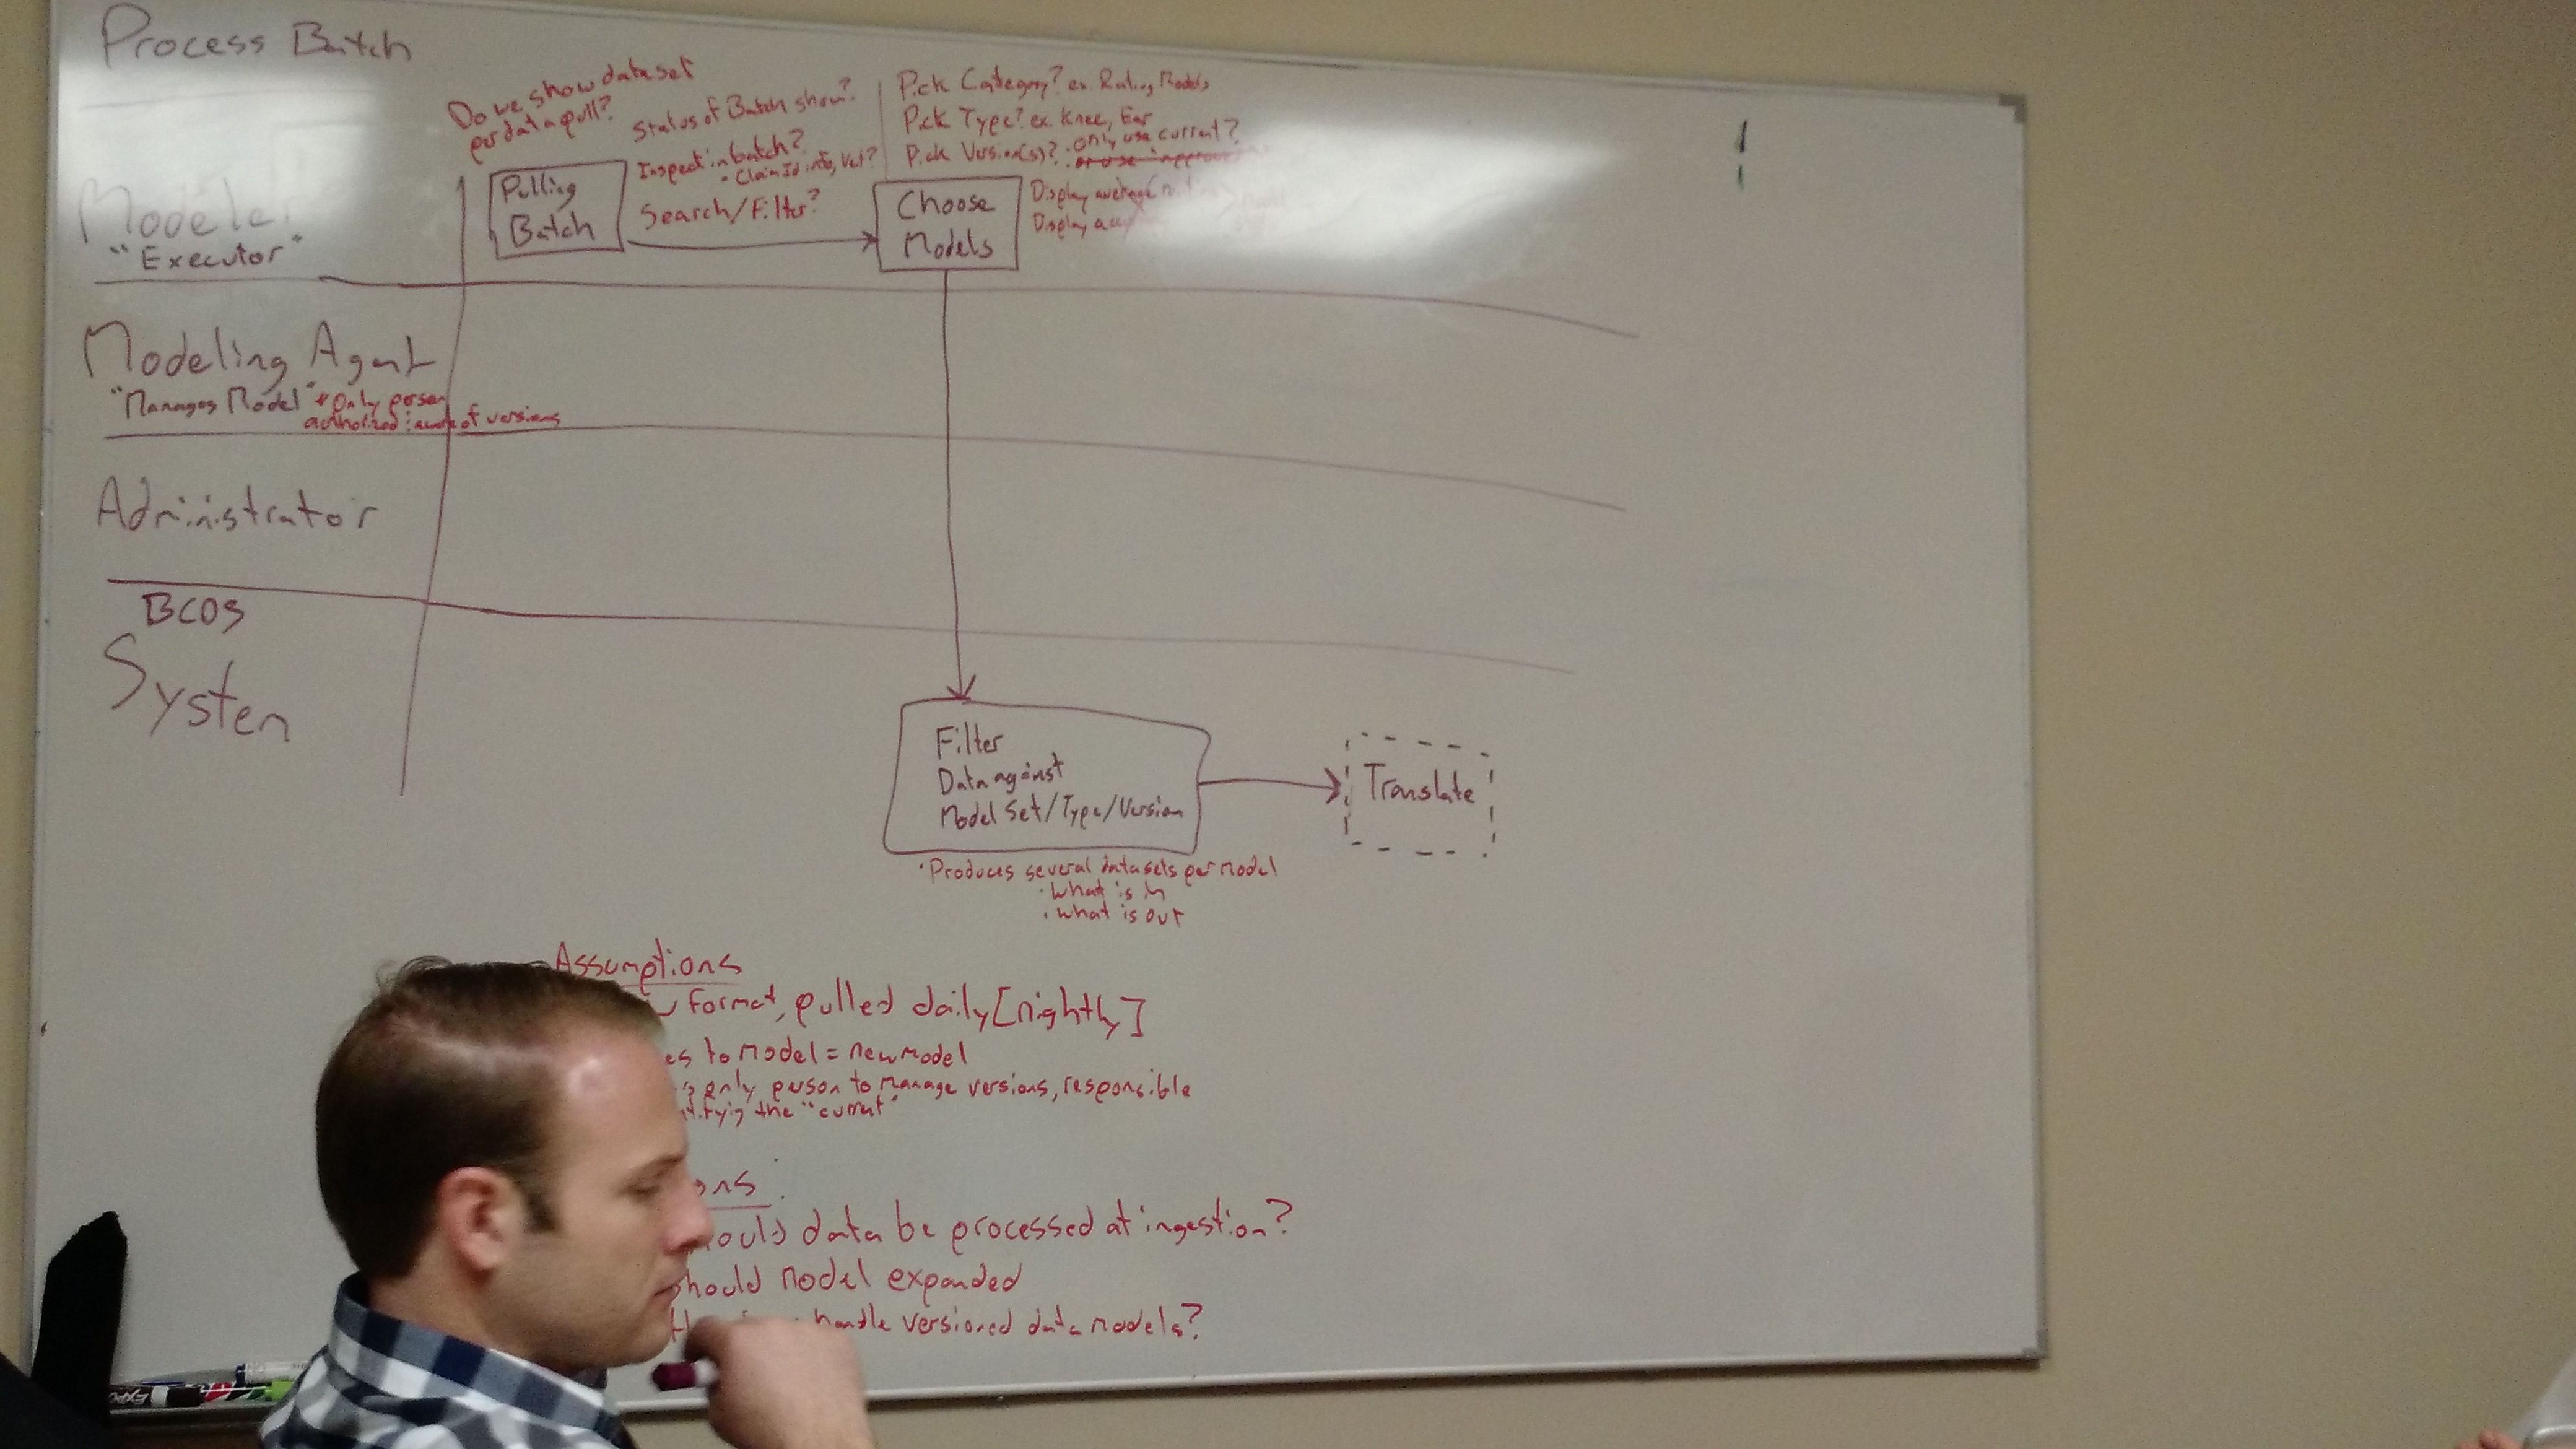 Process Batch
Do we show dataset
per data pull?
Status of Batch show?
Inspect in batch?
· Claim Id info, Val?
Search/Filter?
Pick Category? ex. Rating Models
Pick Type? ex. Knee, Ear
Pick Version(s)? · only use current?
or use "approved
Display average
Display
Modeler
"Executor"
Pulling
Batch
Choose
Models
Modeling Agent
"Manages Model" * Only person
authorized : aware of versions
Administrator
BCOS
System
Filter
Data against
Model Set/Type/Version
Translate
· Produces several datasets per model
· what is in
· what is out
Assumptions
format, pulled daily [nightly]
es to model = new model
only person to manage versions, responsible
the "current"
ons:
ould data be processed at ingestion?
should model expanded
handle versioned data models?
EXPO